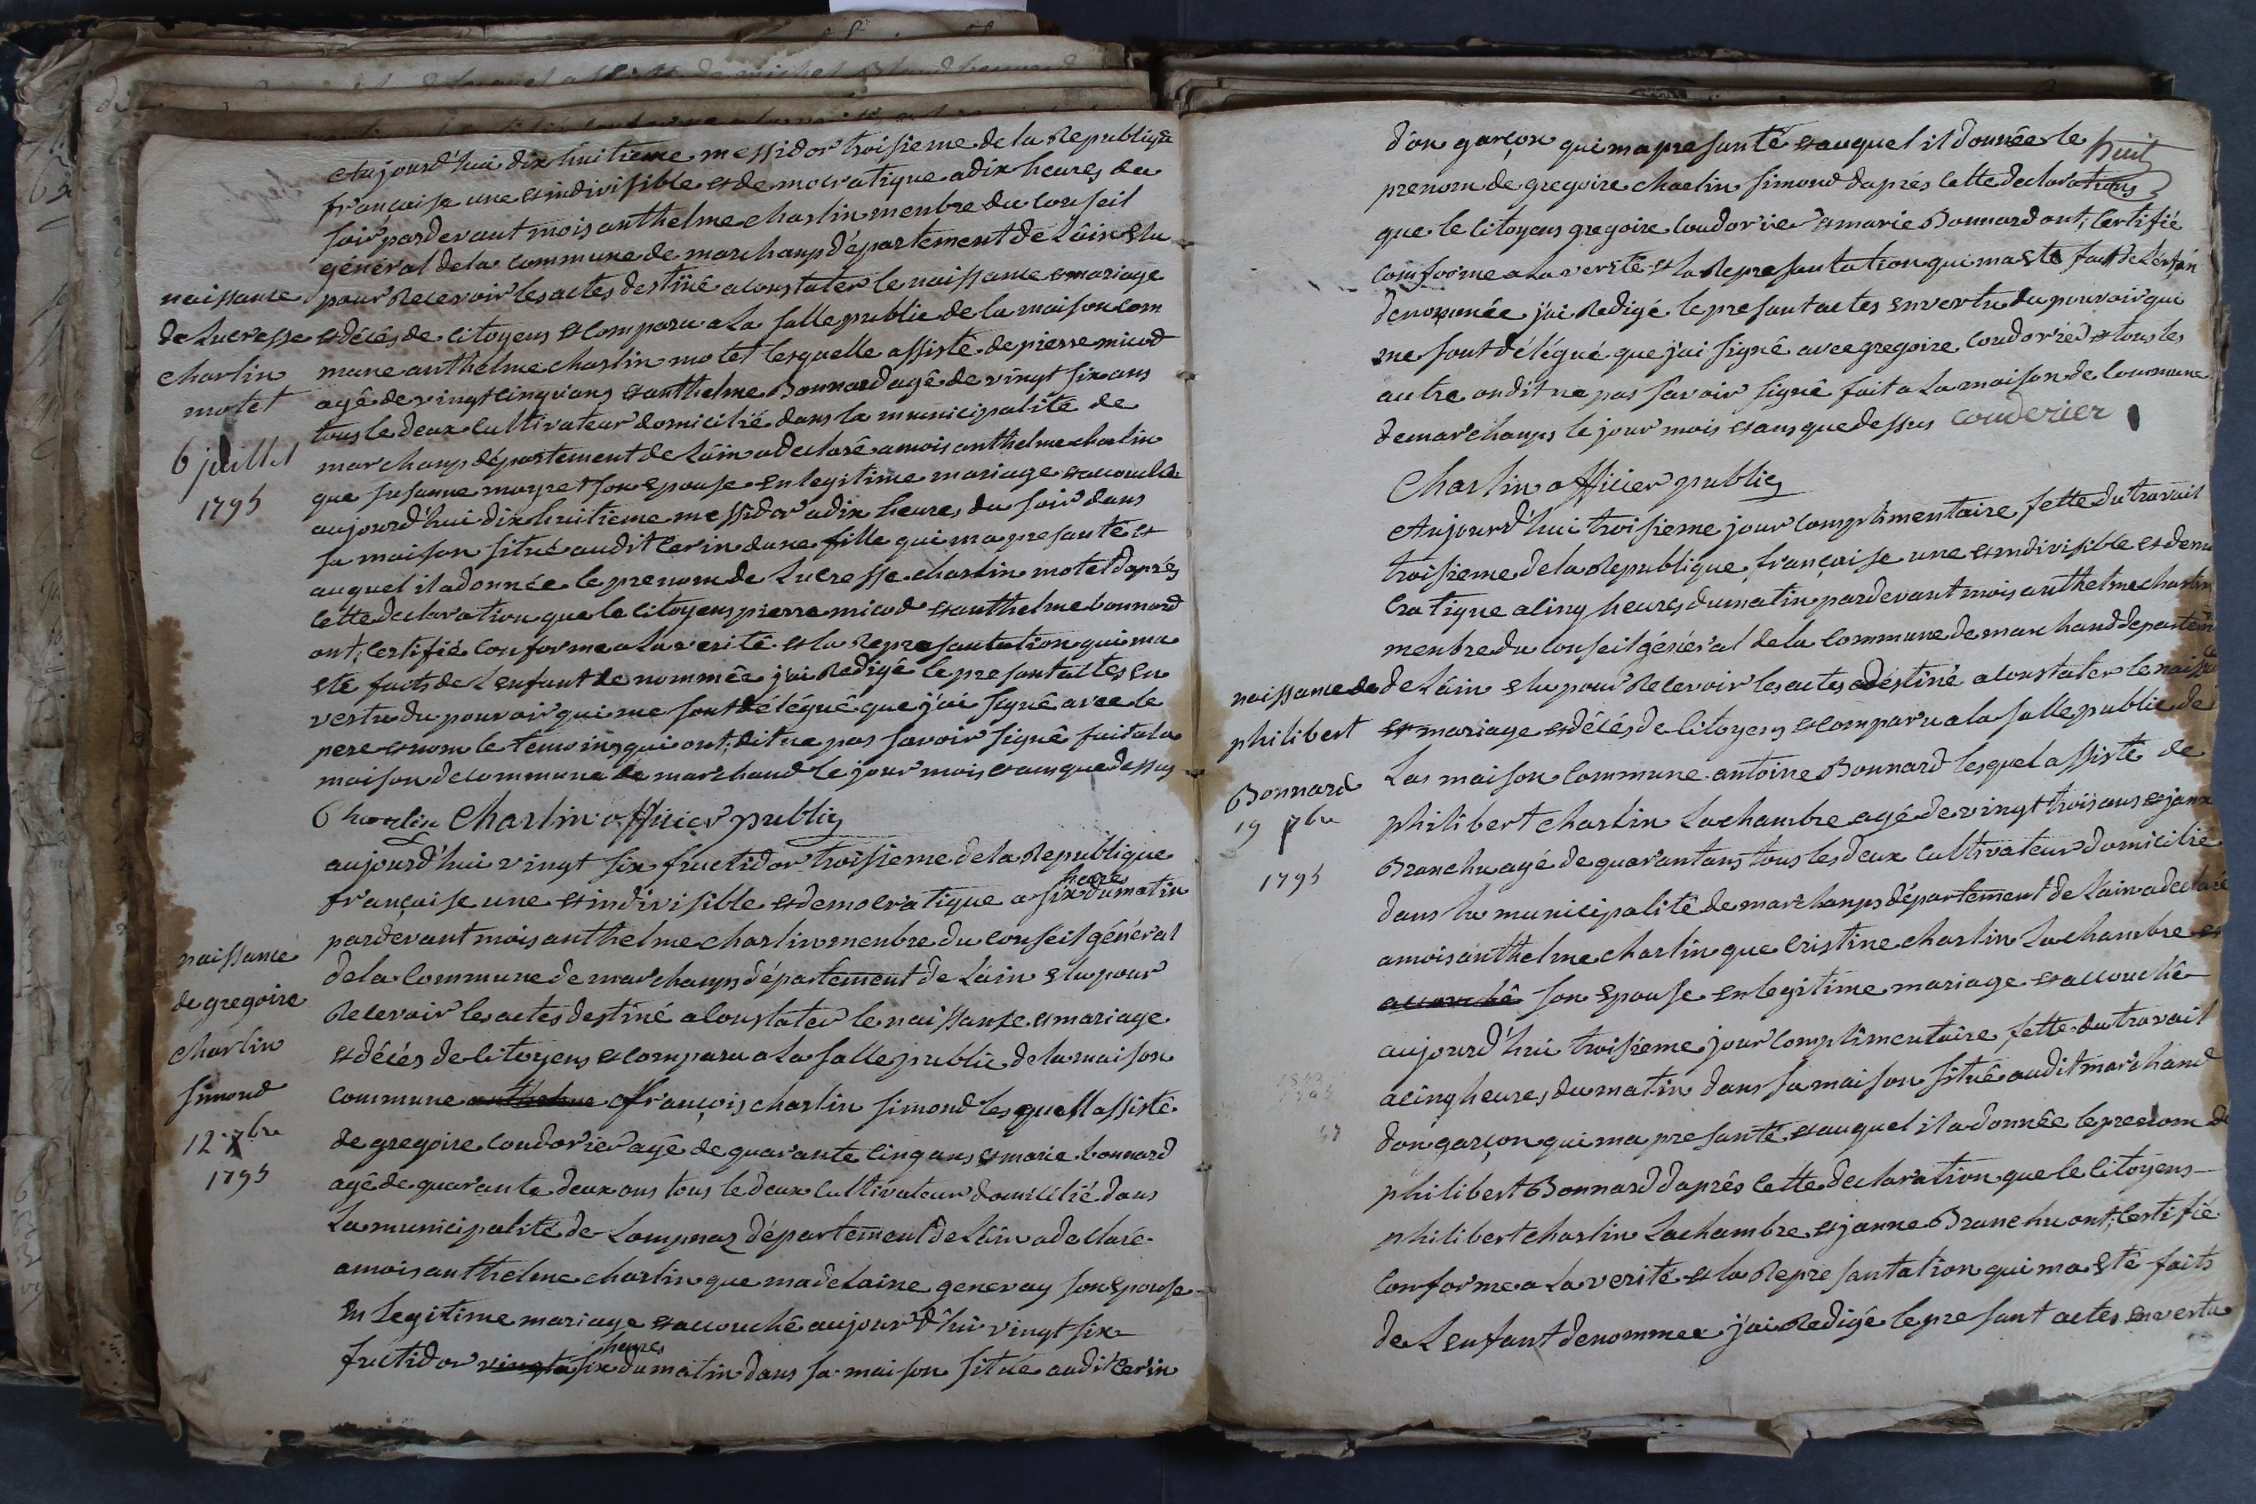 Aujourd'hui dix huitieme messidor troisieme de la Republique
française une et indivisible et democratique a dix heures du
soir pardevant mois anthelme charlin menbre du conseil
général de la commune de marchanps département de Lâin elu
pour Recevoir les actes destiné a constater le naissance et mariage
et décés de citoyens et comparu a la salle public de la maison com
mune anthelme charlin motet lesquelle assisté de pierre micod
agé de vingt cinq ans et anthelme Bonnard agé de vingt six ans
tous le deux cultivateur domicilié dans la municipalité de
marchanp département de Lâin a declaré a mois anthelme charlin
que susanne mayret son epouse en legitime mariage et accouché
aujourd'hui dix huitieme messidor a dix heures du soir dans
sa maison situé audit Cerin dune fille qui ma presanté et
auquel il a donnée le prenom de Lucresse charlin motet daprés
cette declaration que le citoyens pierre micod et anthelme bonnard
ont certifié conforme a la verité et la Represantation qui ma
eté faits de Lenfant denommée j'ai Redigé le presant actes en
vertu du pouvoir qui me sont délégué que j'ai signé avec le
pere et nom le temoins qui ont dit ne pas savoir signé fait a la
maison de commune de marchand le jour mois et ans que dessus
Charlin Charlin officier public
naissance
de Lucresse
charlin
motet
6 juillet
1795
aujourd'hui vingt six fructidor troisieme de la Republique
française une et indivisible et democratique a six heures du matin
pardevant mois anthelme charlin menbre du conseil général
de la commune de marchanps département de Lâin elu pour
Recevoir les actes destiné a constater le naissance et mariage
et décés de citoyens et comparu a la salle public de la maison
commune anthelme françois charlin simond lesquell assisté
de gregoire coudorier agé de quarante cinq ans et marie bonnard
agé de quarante deux ans tous le deux cultivateur domicilié dans
La municipalité de Lompnaz département de Lâin a declaré
a mois anthelme charlin que madelaine genevay son epouse
en legitime mariage et accouché aujourd'hui vingt six
fructidor vingt a six heures du matin dans sa maison situé audit Cerin
naissance
de gregoire
charlin
simond
12 7bre
1795
huit
d'on garçon qui ma presanté et auquel il donnée le
prenom de gregoire charlin simond daprés cette declarations
que le citoyens gregoire coudorier et marie Bonnard ont certifié
comforme a la verité et la Represantation qui ma eté fait de Lenfan
denommée j'ai Redigé le presant actes en vertu du pouvoir qui
me sont délégué que j'ai signé avec gregoire coudorier et tous les
autre ondit ne pas savoir signé fait a La maison de commune
de marchanps le jour mois et ans que dessus couderier
Charlin officier public
Aujourd'hui troisieme jour complimentaire fette du travail
troisieme de la Republique française une et indivisible et demo
cratique a cinq heures du matin pardevant mois anthelme charlin
menbre du conseil général de la commune de marchand departem
de Lâin elu pour Recevoir les actes destiné a constater le naissance
et mariage et décés de citoyens et comparu a la salle public de
Las maison commune antoine Bonnard lesquel assisté de
philibert charlin Lachambre agé de vingt trois ans et janne
Branchu agé de quarant ans tous les deux cultivateur domicilié
dans la municipalité de marchanps département de Lain a declaré
a mois anthelme charlin que Cristine charlin Lachambre et
accouché son epouse en legitime mariage et accouché
aujourd'hui troisieme jour complimentaire fette du travail
a cinq heures du matin dans sa maison situé audit marchand
don garçon qui ma presanté et auquel il a donnée le prenom de
philibert Bonnard daprés cette declaration que le citoyens
philibert charlin Lachambre et janne Branchu ont certifié
conforme a La verité et la Represantation qui ma eté faits
de Lenfant denommee j'ai Redigé le presant actes en vertu
naissance de
philibert
Bonnard
19 7bre
1795